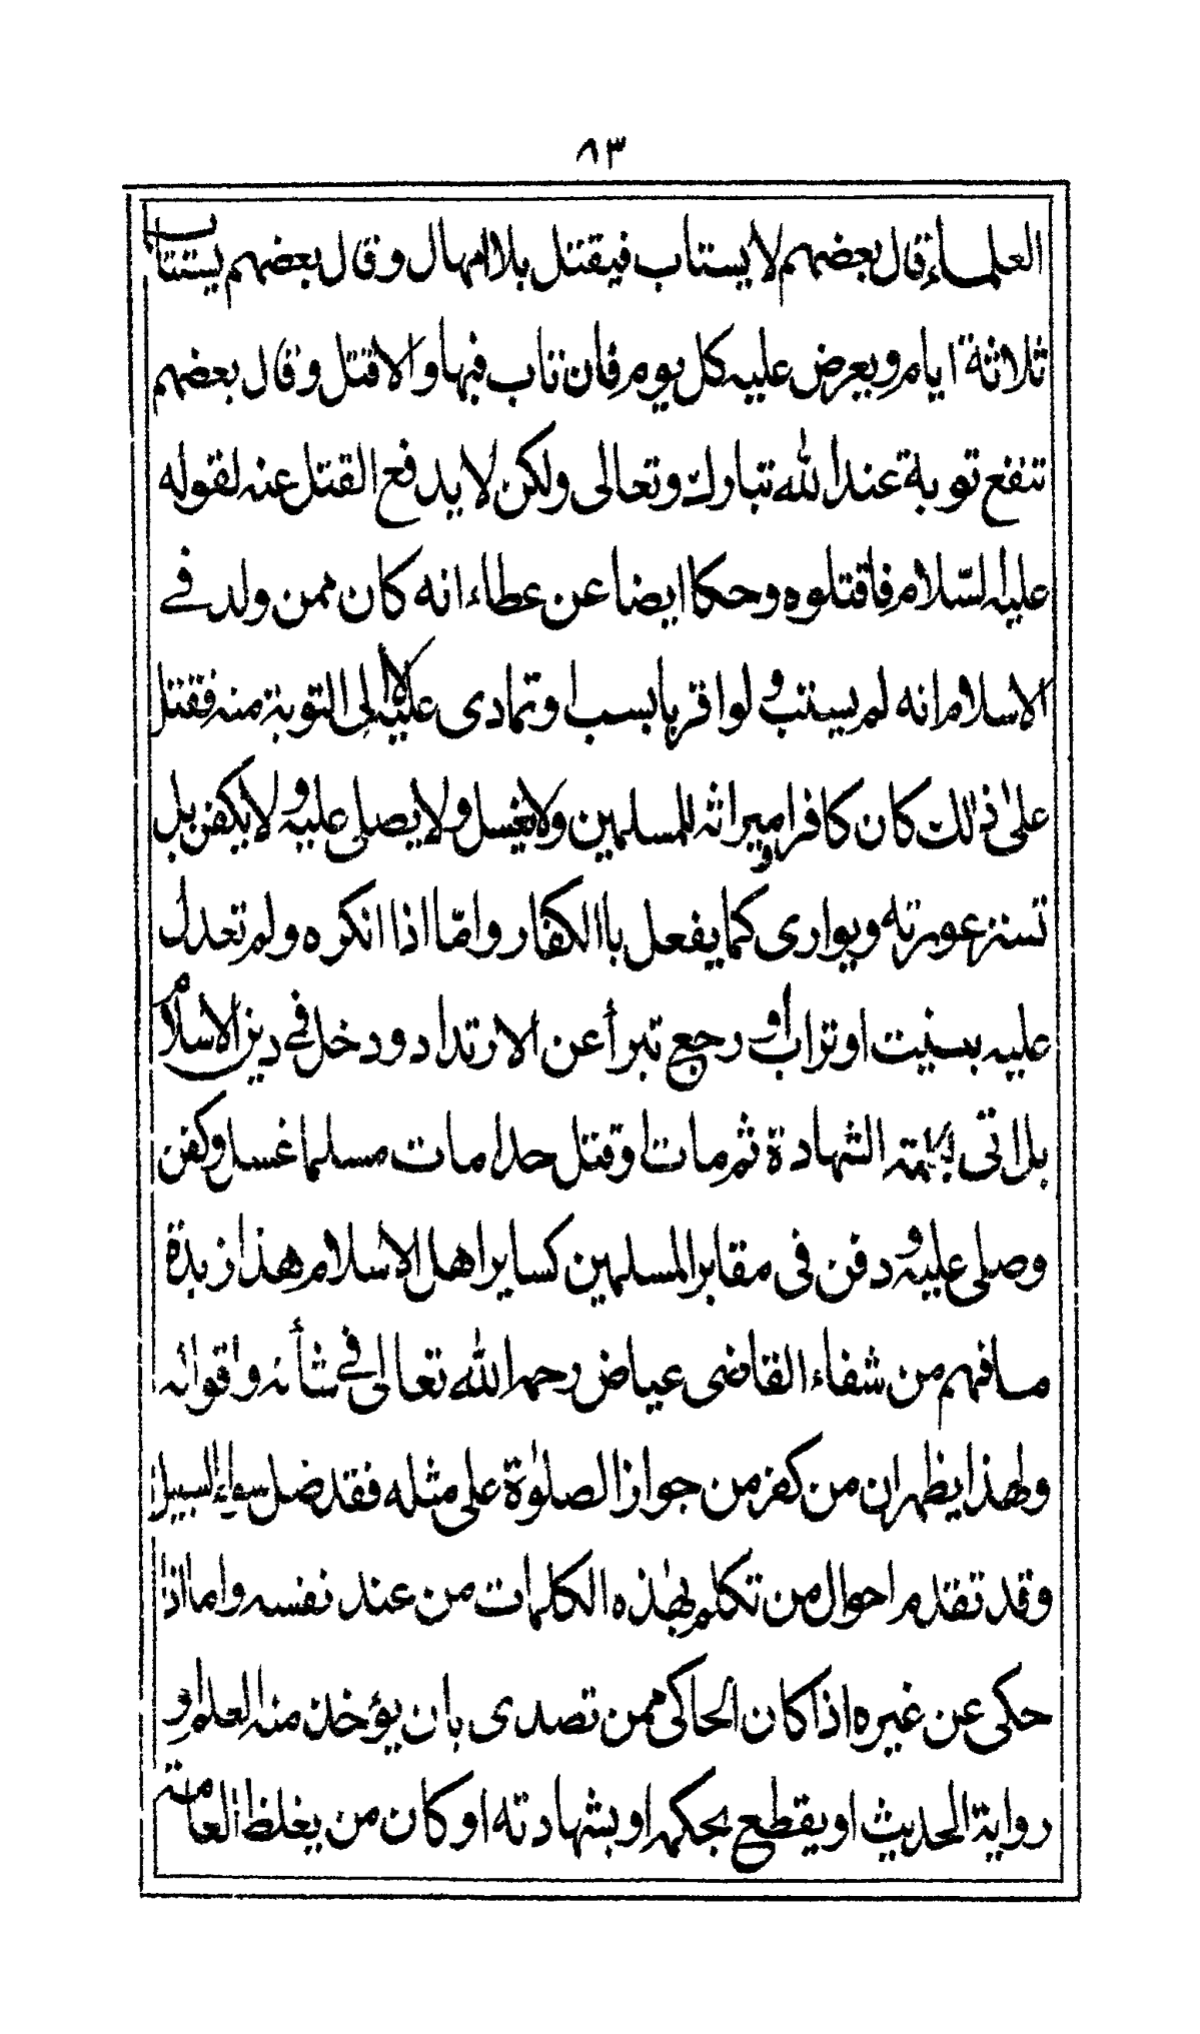 ٨٣
العلماء قال بعضهم لا يستاب فيقتل بلا امهال وقال بعضهم يستتاب
ثلاثة ايام ويعرض عليه كل يوم فان تاب فيها والا قتل وقال بعضهم
تنفع توبة عند الله تبارك وتعالى ولكن لا يدفع القتل عنه لقوله
عليه السّلام فاقتلوه وحكا ايضا عن عطاء انه كان ممن ولد في
الاسلام انه لم يستتب ولو اقربا بسب او تمادى عليه الا الى التوبة منه فقتل
على ذلك كان كافرا وميراثه للمسلمين ولا يغسل ولا يصلى عليه ولا يكفن بل
تستر عورته ويوارى كما يفعل باالكفار وامّا اذا انكره ولم تعدل
عليه بسنيت او تراب او رجع تبرأ عن الارتداد ودخل في دين الاسلام
بلا تى بكلمة الشهادة ثم مات او قتل حدا مات مسلما غسل وكفن
وصلى عليه ودفن فى مقابر المسلمين كساير اهل الاسلام هذا زبدة
ما فهم من شفاء القاضى عياض رحمه الله تعالى في شأنه واقواله
ولهذا يظهر ان من كفر من جواز الصلوٰة على مثله فقد ضل سواء السبيل
وقد تقدم احوال من تكلم بهٰذه الكلمات من عند نفسه واما اذا
حكى عن غيره اذا كان الحاكى ممن تصدى بان يؤخذ منه العلم او
رواية الحديث او يقطع بحكمه او بشهادته او كان من يغلظ العامة